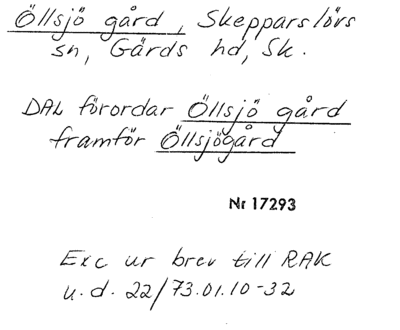 Öllsjö gård, Skepparslövs
sn, Gärds hd, Sk.
DAL förordar Öllsjö gård
framför Öllsjögård
Nr 17293
Exc ur brev till RAK
u.d. 22/73.01.10-32